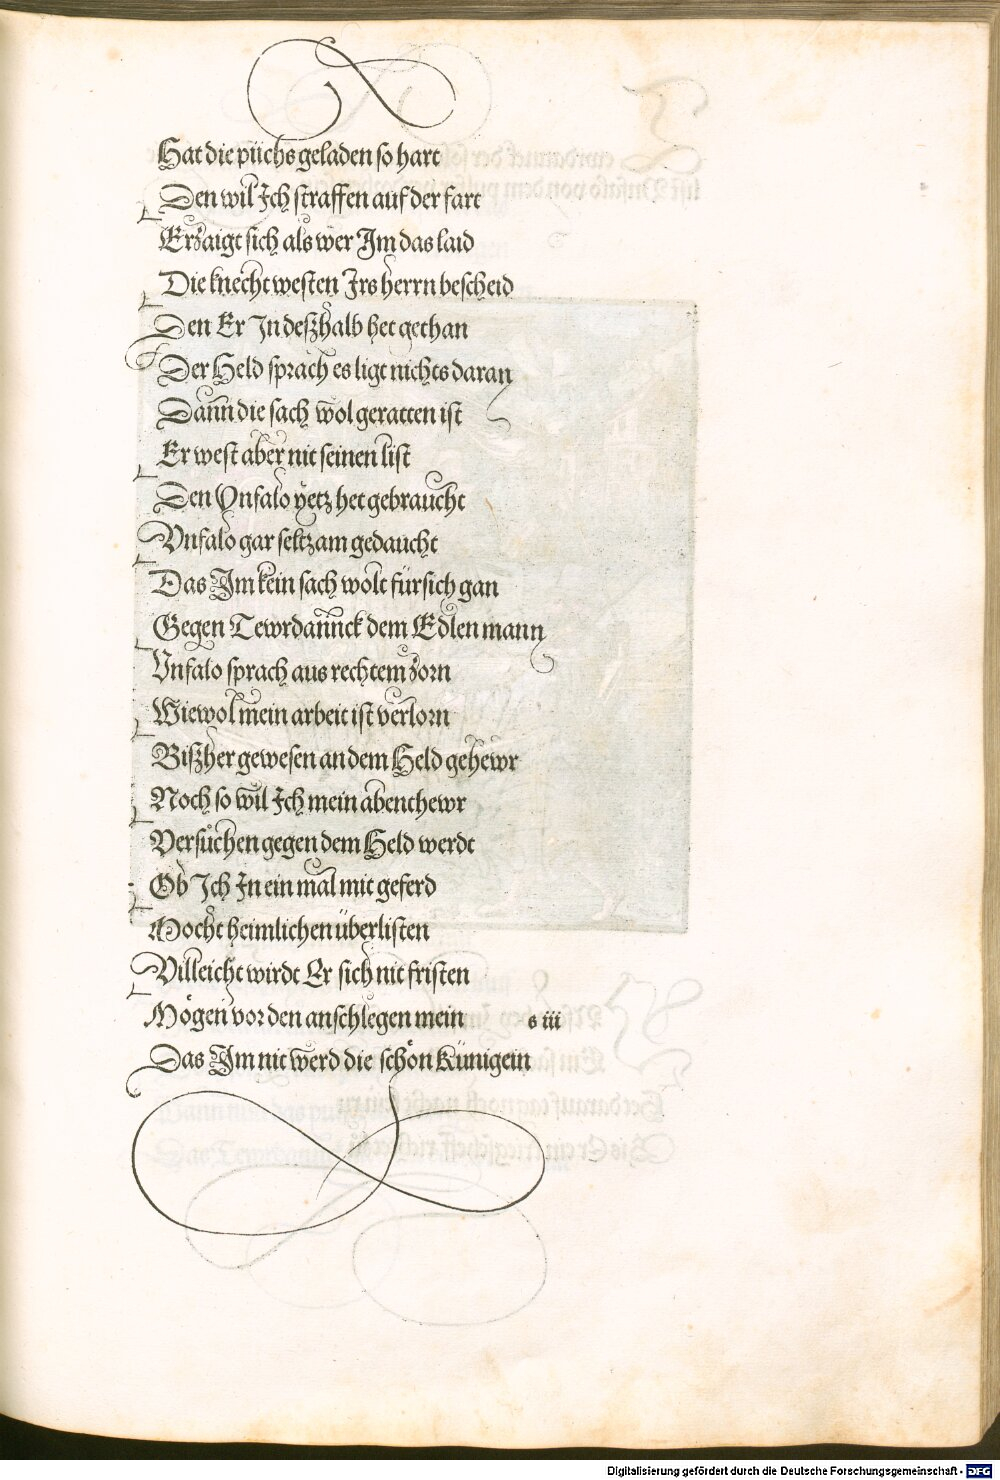 Hat die püchs geladen so hart
Den wil Ich straffen auf der fart
Erzaigt sich als wer Im das laid
Die knecht westen Irs herrn bescheid
Den Er In deßhalb het gethan
Der Held sprach es ligt nichts daran
Dann die sach wol geratten ist
Er west aber nit seinen list
Den Vnfalo yetz het gebraucht
Vnfalo gar seltzam gedaucht
Das Im kein sach wolt für sich gan
Gegen Tewrdannck dem Edlen mann
Vnfalo sprach aus rechtem zorn
Wiewol mein arbeit ist verlorn
Bißher gewesen an dem Held gehewr
Noch so wil Ich mein abenthewr
Versuͦchen gegen dem Held werdt
Ob Ich In ein mal mit geferd
Mocht heimlichen überlisten
Villeicht wirdt Er sich nit fristen
Mögen vor den anschlegen mein s iii
Das Im nit werd die schön Künigein
Digitalisierung gefördert durch die Deutsche Forschungsgemeinschaft - DFG